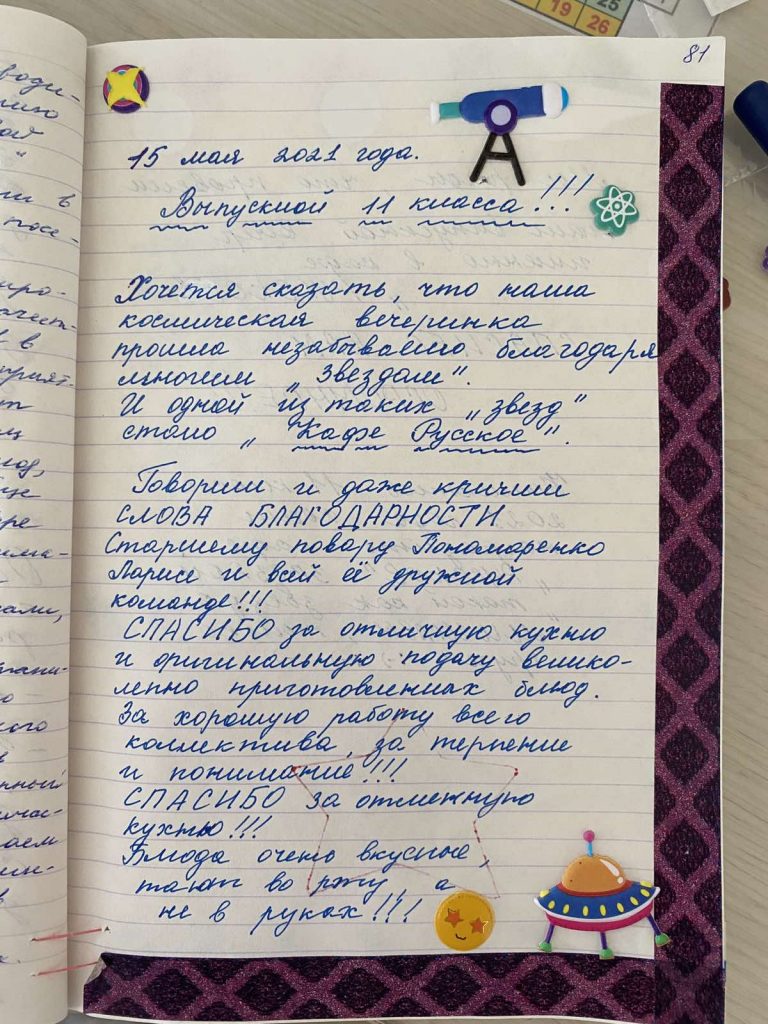 81
15 мая 2021 года.
Выпускной 11 класса!!!
Хочется сказать, что наша
космическая вечеринка
прошла незабываемо благодаря
многим „Звездам".
И одной из таких „звезд"
стало „Кафе Русское".
Говорили и даже кричали
СЛОВА БЛАГОДАРНОСТИ
Старшему повару Пономаренко
Ларисе и всей её дружной
команде!!!
СПАСИБО за отличную кухню
и оригинальную подачу велико-
лепно приготовленных блюд.
За хорошую работу всего
коллектива, за терпение
и понимание!!!
СПАСИБО за отменную
кухню!!!
Блюда очень вкусные,
тают во рту, а
не в руках!!!
19 25
26